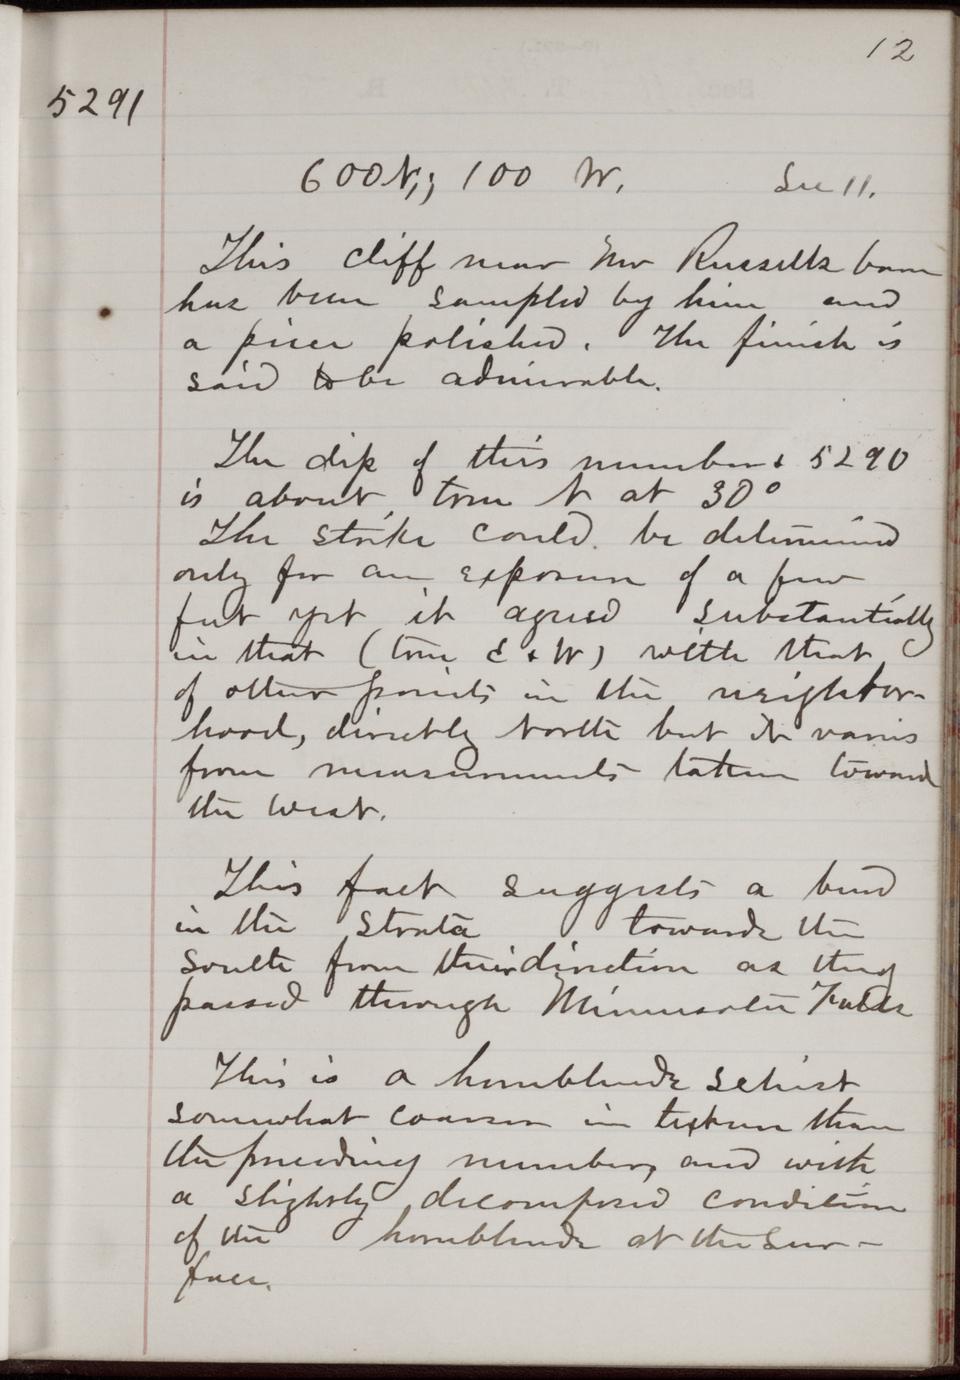 12
5291
600 N.; 100 W. Sec 11.
This cliff near Mr Russells barn
has been sampled by him and
a piece polished. The finish is
said to be admirable.
The dip of this number & 5290
is about true N at 30°
The strike could be determined
only for an exposure of a few
feet yet it agreed substantially
in that (true E & W) with that
of other points in the neighbor-
hood, directly North but it varies
from measurements taken toward
the west.
This fact suggests a bend
in the strata towards the
south from their direction as they
passed through Minnesota Falls
This is a hornblende schist
somewhat coarser in texture than
the preceding number, and with
a slightly decomposed condition
of the hornblende at the sur-
face.